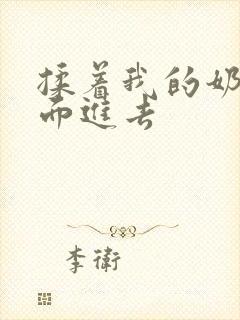 揉着我的奶
而進去
李衛